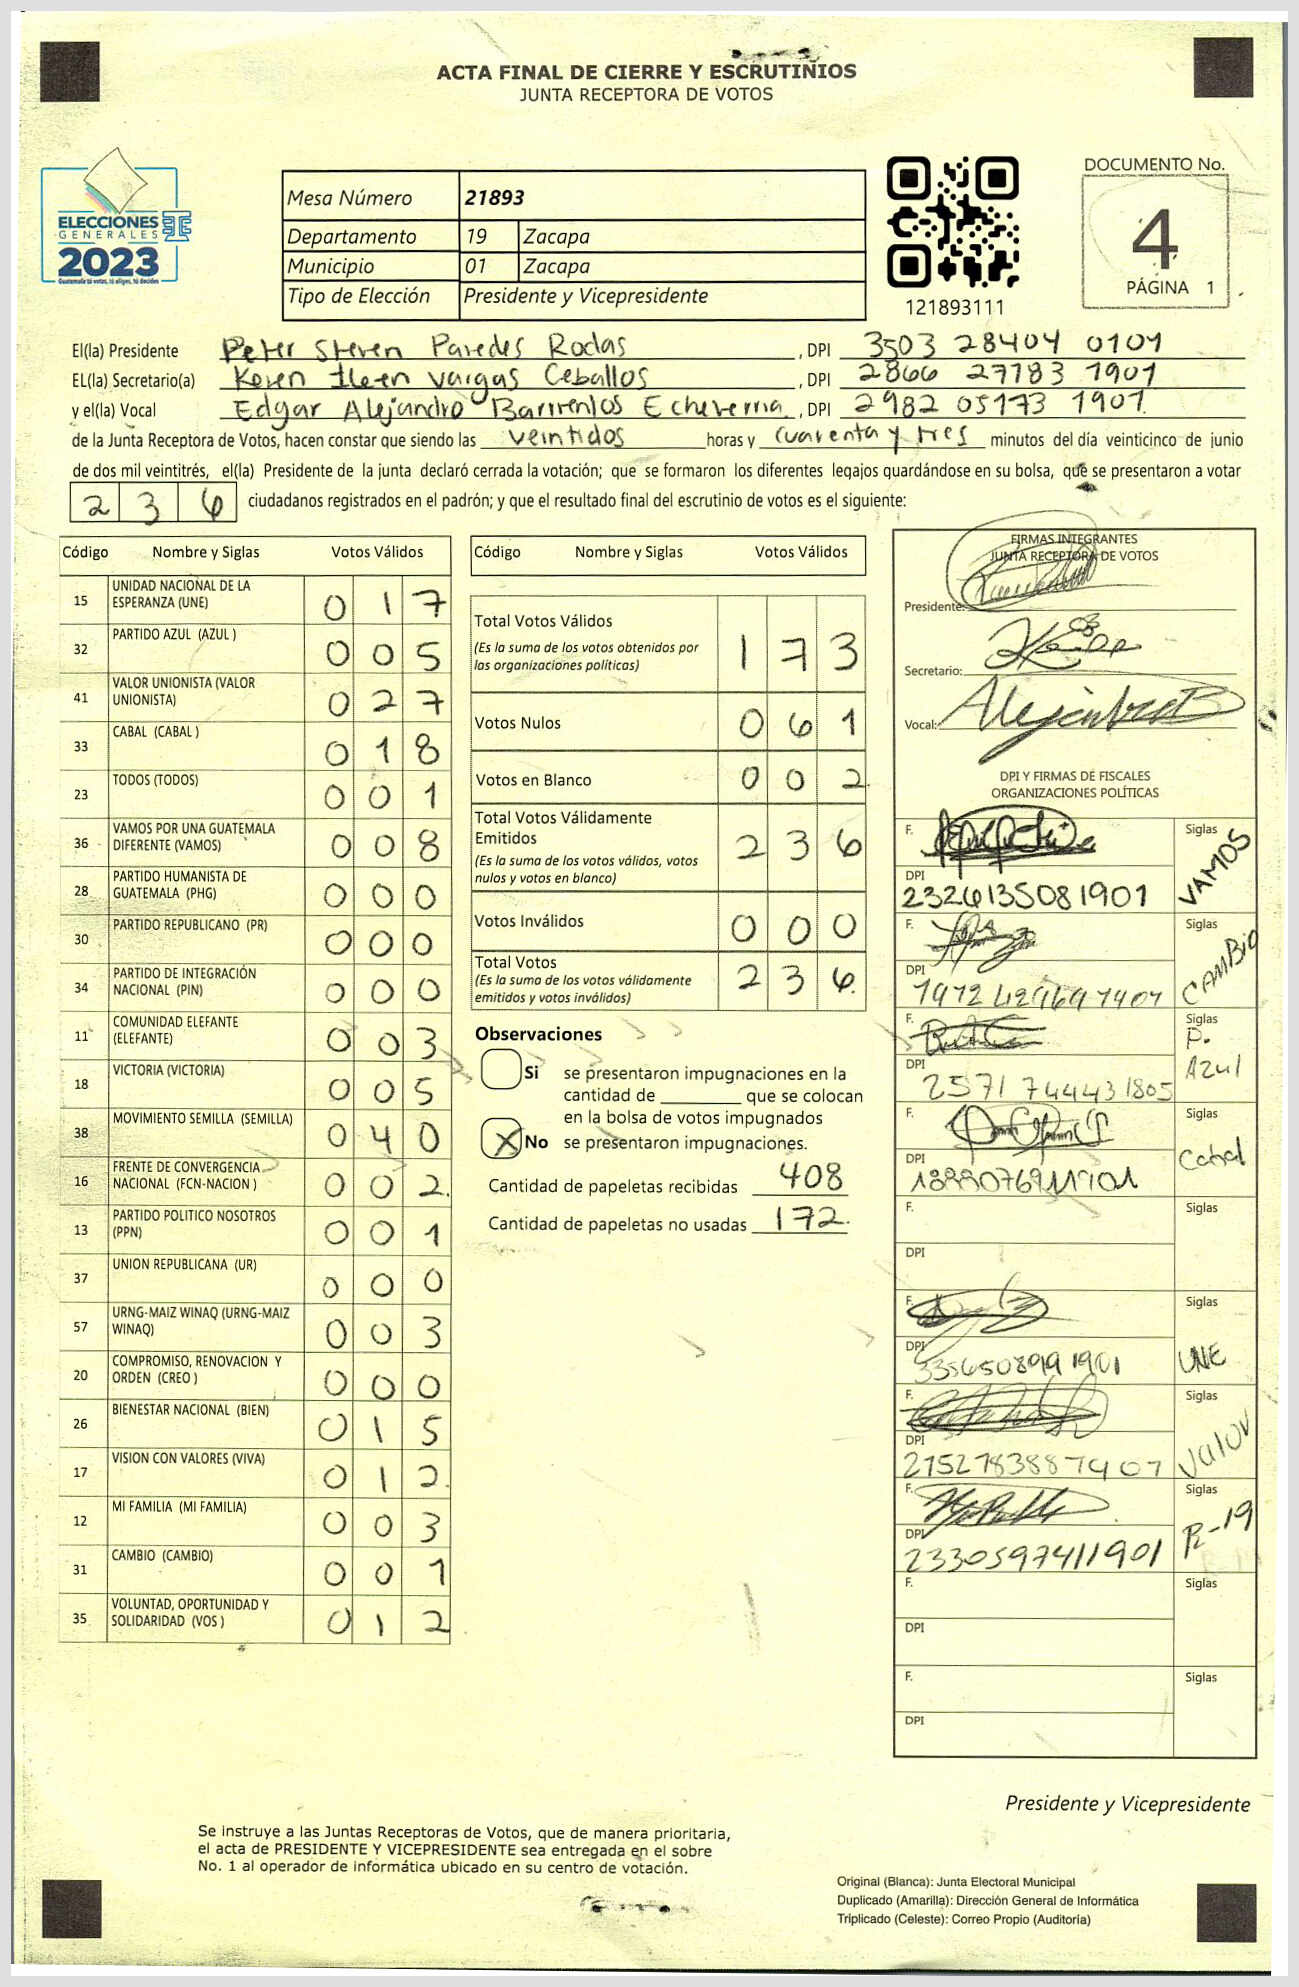 ACTA FINAL DE CIERRE Y ESCRUTINIOS
JUNTA RECEPTORA DE VOTOS
ELECCIONES
GENERALES
2023
Guatemala tú votas, tú eliges, tú decides
Mesa Número 21893
Departamento 19 Zacapa
Municipio 01 Zacapa
Tipo de Elección Presidente y Vicepresidente
121893111
DOCUMENTO No.
4
PÁGINA 1
El(la) Presidente Peter Steven Paredes Rodas, DPI 3503 28404 0101
EL(la) Secretario(a) Keren Ileen Vargas Ceballos, DPI 2866 27183 1901
y el(la) Vocal Edgar Alejandro Barrientos Echeverria, DPI 2982 05173 1901
de la Junta Receptora de Votos, hacen constar que siendo las veintidos horas y cuarenta y tres minutos del día veinticinco de junio
de dos mil veintitrés, el(la) Presidente de la junta declaró cerrada la votación; que se formaron los diferentes legajos guardándose en su bolsa, que se presentaron a votar
2 3 6 ciudadanos registrados en el padrón; y que el resultado final del escrutinio de votos es el siguiente:
Código Nombre y Siglas Votos Válidos
15 UNIDAD NACIONAL DE LA ESPERANZA (UNE) 0 1 7
32 PARTIDO AZUL (AZUL ) 0 0 5
41 VALOR UNIONISTA (VALOR UNIONISTA) 0 2 7
33 CABAL (CABAL ) 0 1 8
23 TODOS (TODOS) 0 0 1
36 VAMOS POR UNA GUATEMALA DIFERENTE (VAMOS) 0 0 8
28 PARTIDO HUMANISTA DE GUATEMALA (PHG) 0 0 0
30 PARTIDO REPUBLICANO (PR) 0 0 0
34 PARTIDO DE INTEGRACIÓN NACIONAL (PIN) 0 0 0
11 COMUNIDAD ELEFANTE (ELEFANTE) 0 0 3
18 VICTORIA (VICTORIA) 0 0 5
38 MOVIMIENTO SEMILLA (SEMILLA) 0 4 0
16 FRENTE DE CONVERGENCIA NACIONAL (FCN-NACION ) 0 0 2
13 PARTIDO POLITICO NOSOTROS (PPN) 0 0 1
37 UNION REPUBLICANA (UR) 0 0 0
57 URNG-MAIZ WINAQ (URNG-MAIZ WINAQ) 0 0 3
20 COMPROMISO, RENOVACION Y ORDEN (CREO ) 0 0 0
26 BIENESTAR NACIONAL (BIEN) 0 1 5
17 VISION CON VALORES (VIVA) 0 1 2
12 MI FAMILIA (MI FAMILIA) 0 0 3
31 CAMBIO (CAMBIO) 0 0 1
35 VOLUNTAD, OPORTUNIDAD Y SOLIDARIDAD (VOS ) 0 1 2
Código Nombre y Siglas Votos Válidos
Total Votos Válidos 1 7 3
(Es la suma de los votos obtenidos por
las organizaciones políticas)
Votos Nulos 0 6 1
Votos en Blanco 0 0 2
Total Votos Válidamente
Emitidos 2 3 6
(Es la suma de los votos válidos, votos
nulos y votos en blanco)
Votos Inválidos 0 0 0
Total Votos 2 3 6
(Es la suma de los votos válidamente
emitidos y votos inválidos)
Observaciones
Si se presentaron impugnaciones en la
cantidad de ________ que se colocan
en la bolsa de votos impugnados
X No se presentaron impugnaciones.
Cantidad de papeletas recibidas 408
Cantidad de papeletas no usadas 172
FIRMAS INTEGRANTES
JUNTA RECEPTORA DE VOTOS
Presidente:
Secretario:
Vocal:
DPI Y FIRMAS DE FISCALES
ORGANIZACIONES POLÍTICAS
F. Siglas VAMOS
DPI 2326135081901
F. Siglas CAMBIO
DPI
F. Siglas P. Azul
DPI 2571 74443 1805
F. Siglas Cabal
DPI
F. Siglas
DPI
F. Siglas UNE
DPI 3356508991901
F. Siglas Valor
DPI
F. Siglas R-19
DPI 2330597411901
F. Siglas
DPI
F. Siglas
DPI
Presidente y Vicepresidente
Se instruye a las Juntas Receptoras de Votos, que de manera prioritaria,
el acta de PRESIDENTE Y VICEPRESIDENTE sea entregada en el sobre
No. 1 al operador de informática ubicado en su centro de votación.
Original (Blanca): Junta Electoral Municipal
Duplicado (Amarilla): Dirección General de Informática
Triplicado (Celeste): Correo Propio (Auditoría)